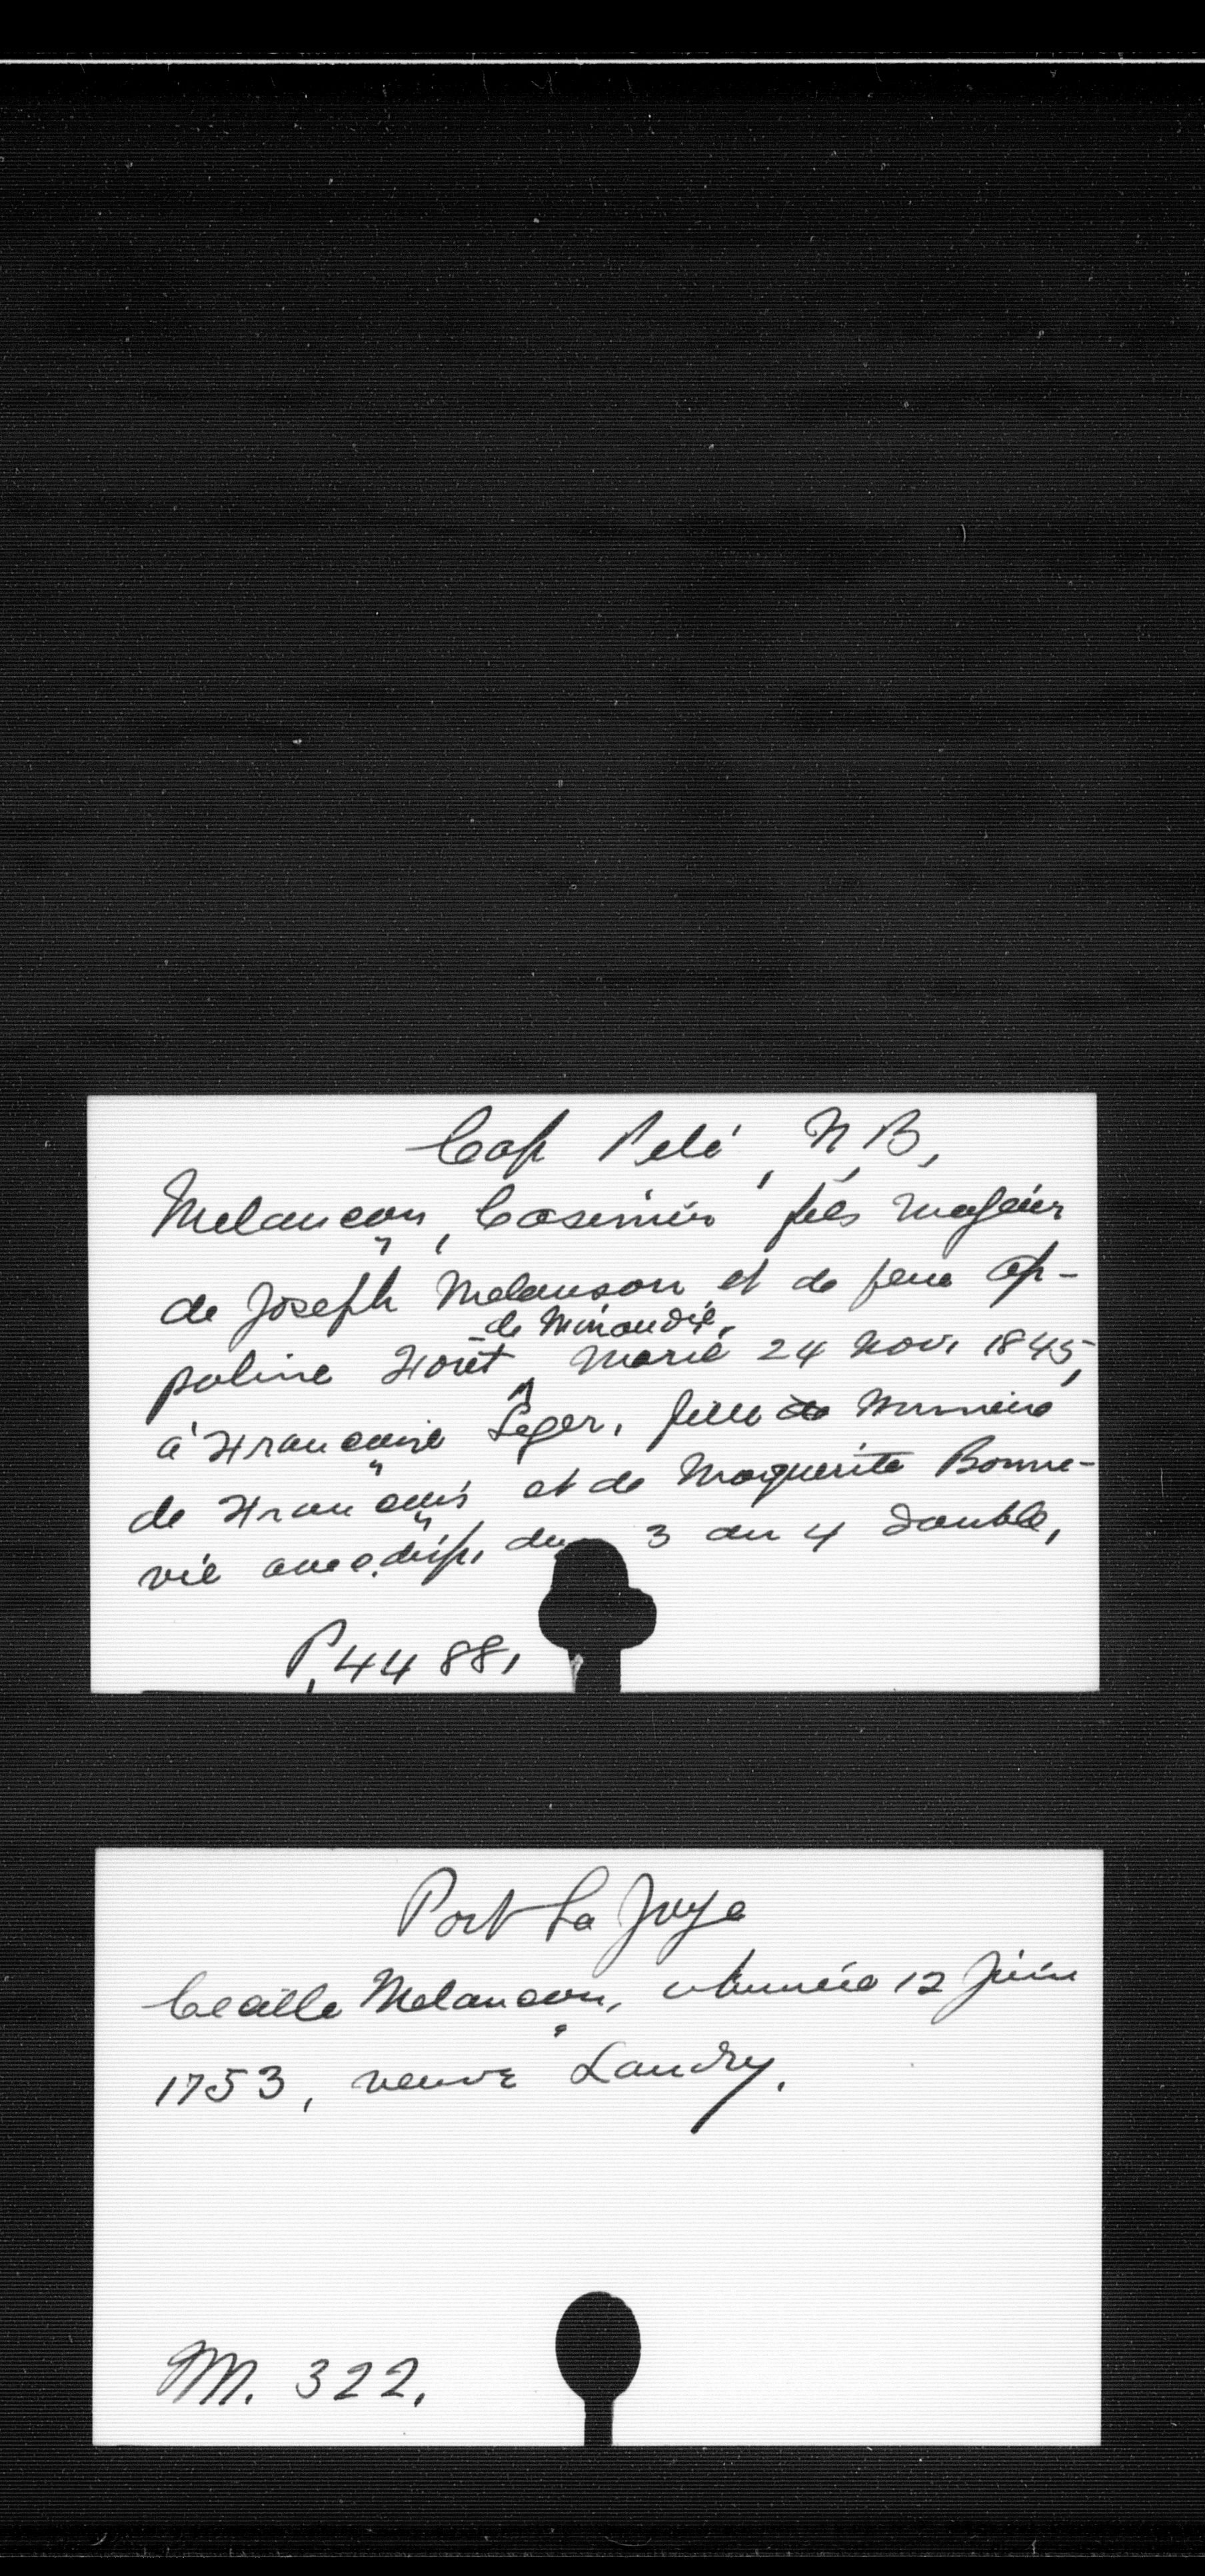 Cap Pelé, N,B,
Melançon, Casimir fils majeur
de Joseph Melanson et de feue Ap-
poline Forêt ^de Minoudie. Marié 24 nov. 1845,
à Françoise Leger, fille mineure
de François et de Marguerite Bonne-
vie avec disp. du 3 au 4 double,
P. 4488,
Port La Joye
Cecille Melançon, inhumée 12 Juin
1753, veuve Landry.
M. 322.